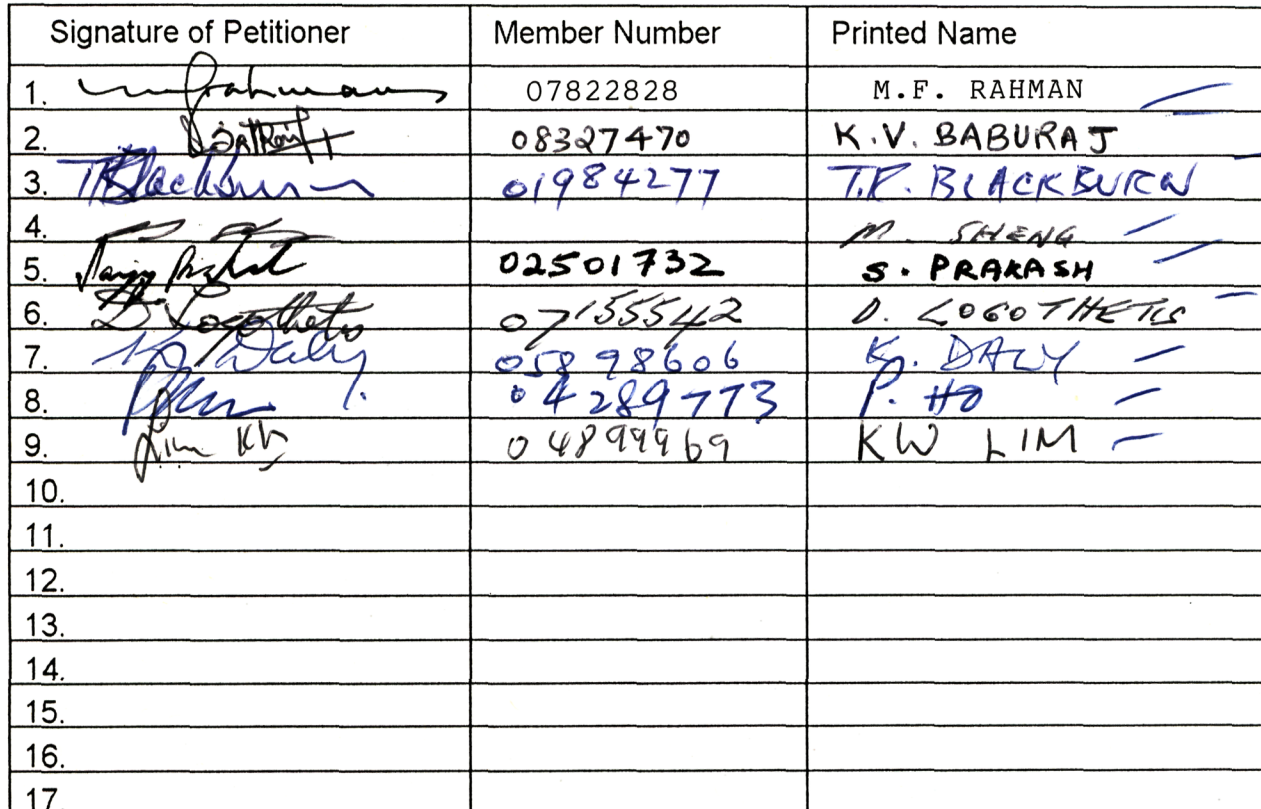 Signature of Petitioner Member Number Printed Name
1. 07822828 M.F. RAHMAN
2. 08327470 K.V. BABURAJ
3. TRBlackburn 01984277 T.R. BLACKBURN
4. M. SHENG
5. 02501732 S. PRAKASH
6. D. Logothetis 07155542 D. LOGOTHETIS
7. Daly 05898606 K. DALY
8. 04289773 P. HO
9. Lim KW 04899969 KW LIM
10.
11.
12.
13.
14.
15.
16.
17.